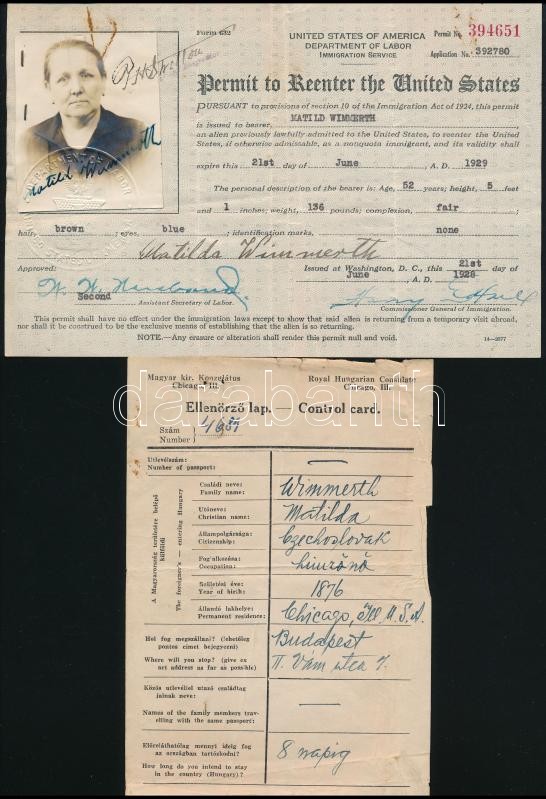 Form 632
UNITED STATES OF AMERICA
DEPARTMENT OF LABOR
IMMIGRATION SERVICE
Permit No. 394651
Application No. 392780
Permit to Reenter the United States
PURSUANT to provisions of section 10 of the Immigration Act of 1924, this permit
is issued to bearer, MATILD WIMMERTH
an alien previously lawfully admitted to the United States, to reenter the United
States, if otherwise admissible, as a nonquota immigrant, and its validity shall
expire this 21st day of June, A. D. 1929
The personal description of the bearer is: Age, 52 years; height, 5 feet
and 1 inches; weight, 136 pounds; complexion, fair ;
hair, brown ; eyes, blue ; identification marks, none
Matild Wimmerth
Matilda Wimmerth
Approved:
Issued at Washington, D. C., this 21st day of
June, A. D. 1928
Second Assistant Secretary of Labor.
Commissioner General of Immigration.
This permit shall have no effect under the immigration laws except to show that said alien is returning from a temporary visit abroad,
nor shall it be construed to be the exclusive means of establishing that the alien is so returning.
NOTE.—Any erasure or alteration shall render this permit null and void.
14—2877
darabanth.com
Magyar kir. Konzulátus
Chicago Ill.
Royal Hungarian Consulate
Chicago, Ill.
Ellenőrző lap. — Control card.
Szám
Number
Utlevélszám:
Number of passport: —
A Magyarország területére belépő külföldi
The foreigner's — entering Hungary
Családi neve:
Family name: Wimmerth
Utóneve:
Christian name: Matilda
Állampolgársága:
Citizenship: Czechoslovak
Foglalkozása:
Occupation:
Születési éve:
Year of birth: 1876
Állandó lakhelye:
Permanent residence: Chicago, Ill. U.S.A.
Hol fog megszállani? (lehetőleg
pontos címet bejegyezni)
Where will you stop? (give ex
act address as far as possible)
Budapest
II. Vám utca 7.
Közös utlevéllel utazó családtag
jainak neve:
Names of the family members trav-
elling with the same passport: —
Előreláthatólag mennyi ideig fog
az országban tartózkodni?
How long do you intend to stay
in the country (Hungary)?
8 napig